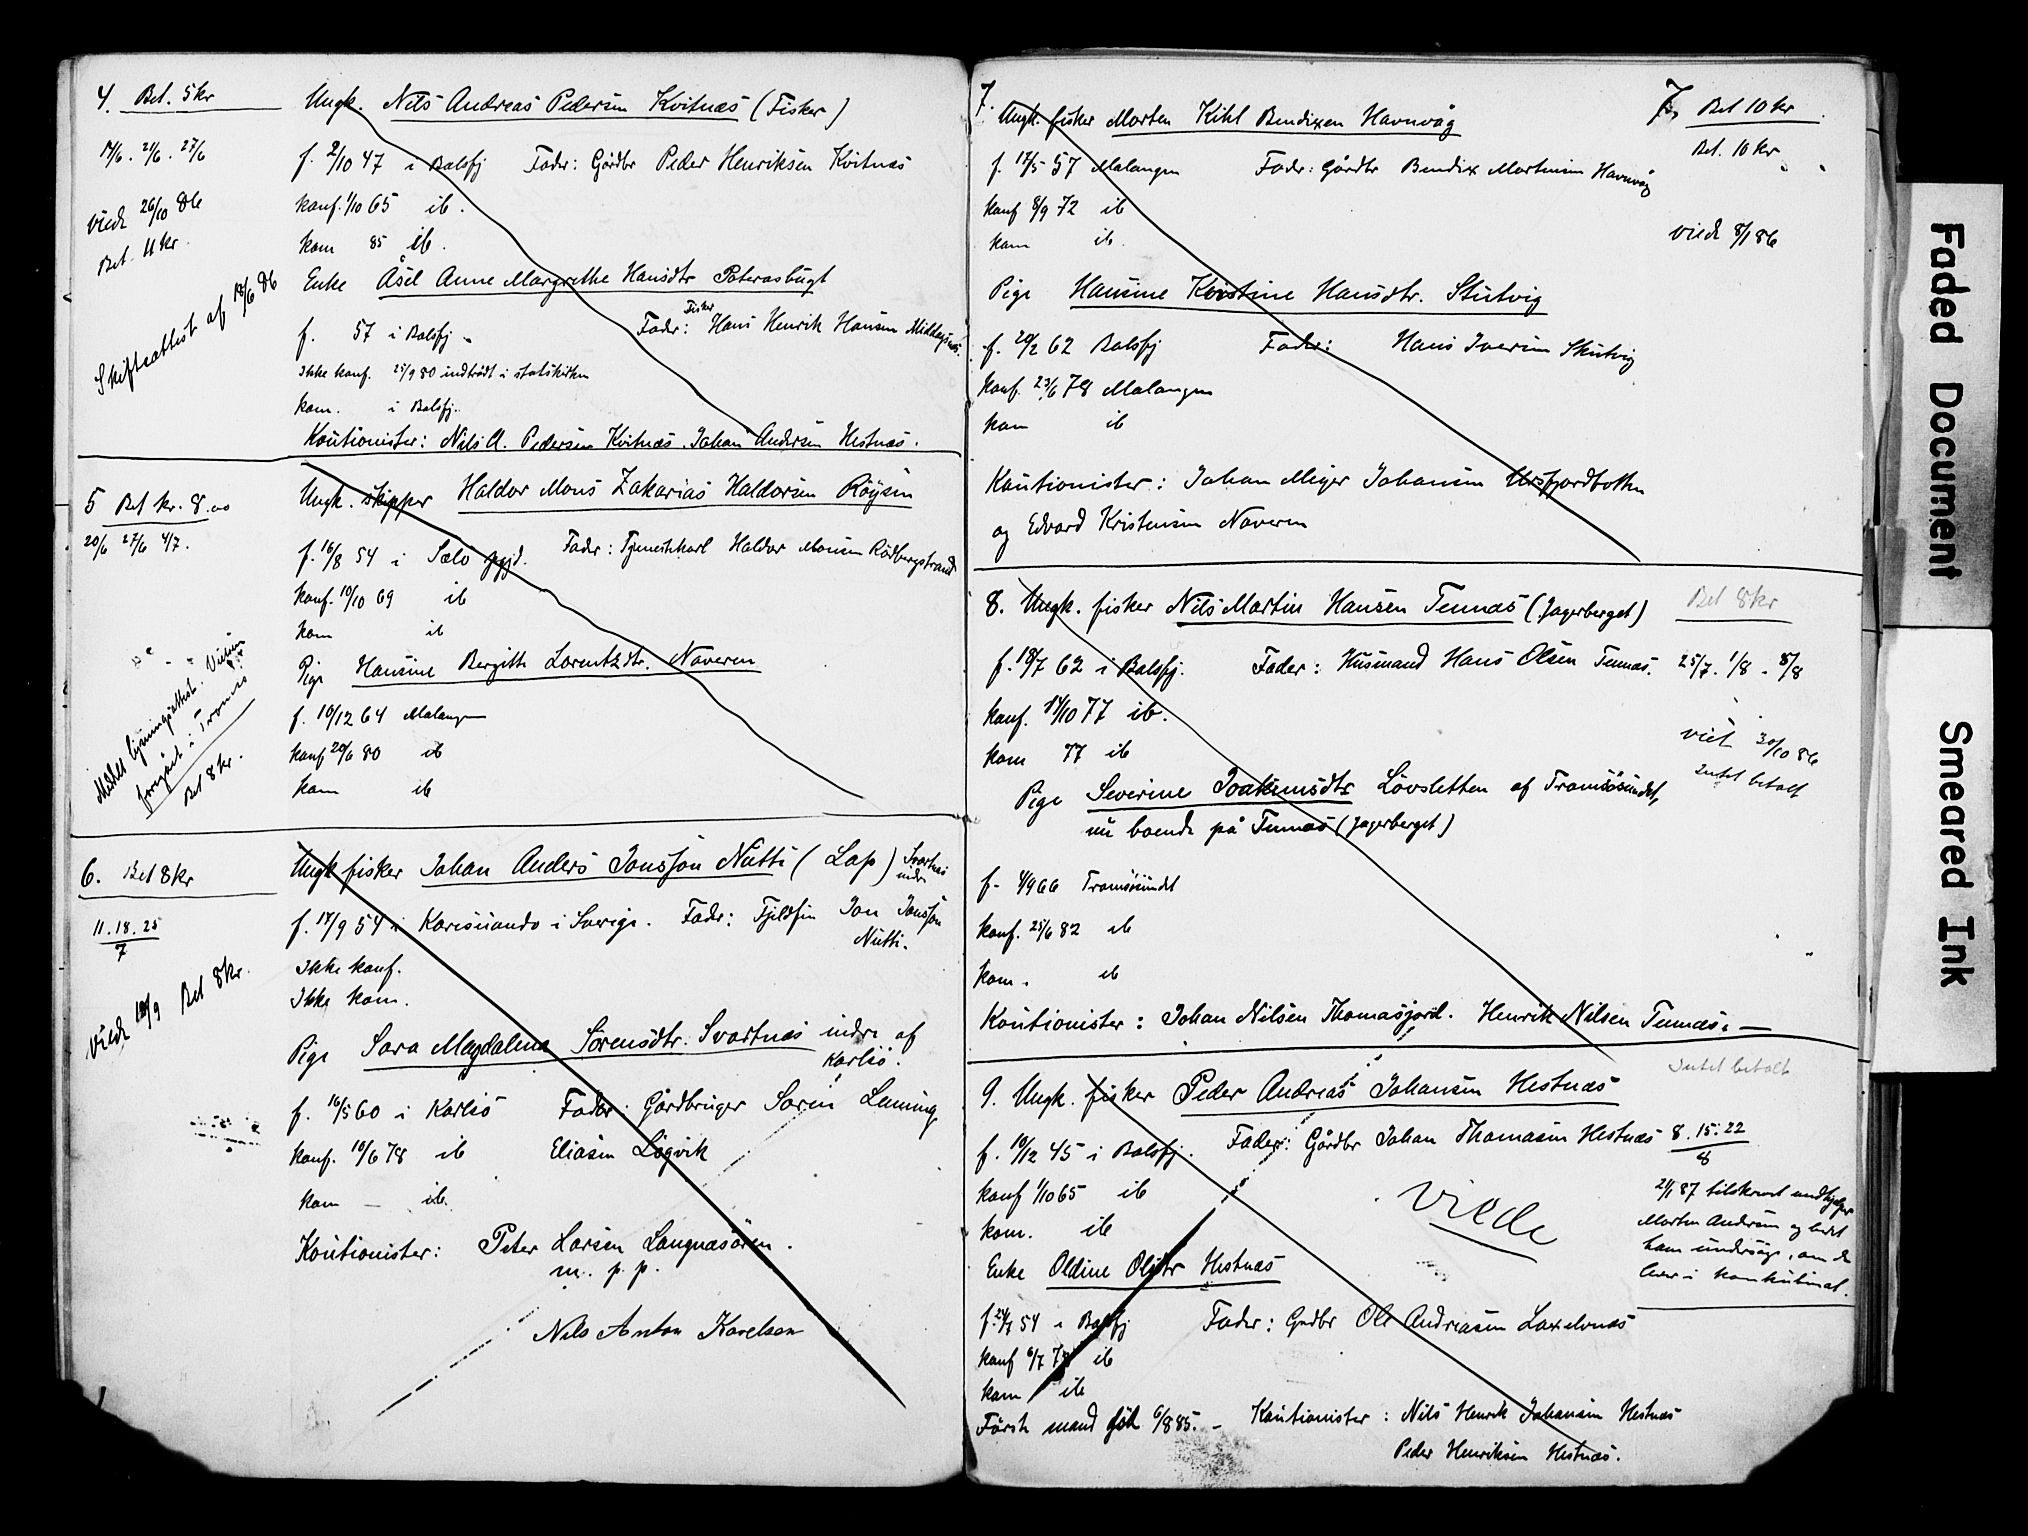 4. Bet. 5 kr
14/6. 21/6. 27/6
Viede 26/10 86
Bet. 4 kr.
Skifteattest af 18/6 86
Ungk. Nils Andreas Pedersen Kvitnæs (Fisker)
f. 2/10 47 i Balsfj Fader: Gårdbr Peder Henriksen Kvitnæs
konf. 1/10 65 ib.
kom 85 ib.
Enke Åsel Anne Margrethe Hansdtr Päterasbugt
f. 57 i Balsfj Fader: Fisker Hans Henrik Hansen
Ikke konf. 25/9 80 indtrådt i statskirken
kom. i Balsfj.
Kautionister: Nils A. Pedersen Kvitnæs. Johan Andersen Hestnæs.
5 Bet kr. 8.00
20/6 27/6 4/7.
Modtet lysningsattest. Vielsen
foregået i Tromsø
Bet 8 kr.
Ungk. skipper Haldor Mons Zakarias Haldorsen Röysen
f. 16/8 54 i Sælö pgjd. Fader: Tjenestekarl Haldor Monsen Rödbergstrand
konf. 10/10 69 ib
kom ib
Pige Hansine Bergitte Lorentzdtr. Naveren
f. 10/12 64 Malangen
konf 20/6 80 ib
kom ib
6. Bet 8 kr
11.18.25
7
Viede 18/9 Bet 8 kr.
Ungk fisker Johan Anders Jonsson Nutti (Lap) Svartnæs indre
f. 17/9 54 i Karesuando i Sverige. Fader: Fjeldfin Jon Jonsson
Nutti.
Ikke konf.
Ikke kom.
Pige Sara Magdalena Sörensdtr. Svartnæs indre af
Karlsö.
f. 16/5 60 i Karlsö Fader: Gårdbruger Sören Lemming
konf. 10/6 78 ib Eliasen Lögvik
kom — ib.
Kautionister: Peter Larsen Langnæsören.
m. p. p.
Nils Anton Karelsen
7. Ungk. fisker Morten Kihl Bendixen Havnvåg
f. 17/5 57 Malangen Fader: Gårdbr Bendix Martinsen Havnvåg
konf 8/9 72 ib
kom ib.
Pige Hansine Kristine Hansdtr. Stutvig
f. 20/2 62 Balsfj Fader: Hans Iversen Skutvig
konf. 23/6 78 Malangen
kom ib
Kautionister: Johan Meyer Johansen Ursfjordbotten
og Edvard Kristensen Naveren
7. Bet 10 kr
Bet. 10 kr
Viede 8/1 86
8. Ungk. fisker Nils Martin Hansen Tennæs (Jagerberget)
f. 18/7 62 i Balsfj. Fader: Husmand Hans Olsen Tennæs.
konf. 14/10 77 ib.
kom 77 ib
Pige Severine Joakimsdtr Lövsletten af Tromsösundet,
nu boende på Tennæs (Jagerberget)
f. 4/9 66 Tromsösundet
konf. 25/6 82 ib
kom. ib
Kautionister: Johan Nilsen Thomasjord. Henrik Nilsen Tennæs. —
Bet 8 kr
25/7. 1/8 - 8/8
viet 30/10 86
Intet betalt
9. Ungk. fisker Peder Andreas Johansen Hestnæs
f. 10/12 45 i Balsfj. Fader: Gårdbr Johan Thomasen Hestnæs
konf 1/10 65 ib
kom. ib
Viede
Enke Oldine Olsdtr Hestnæs
f. 24/7 54 i Balsfj Fader: Grdbr Ole Andreasen Laxelvnæs
konf 6/7 ib
kom ib
Förste mand död 6/8 85. — Kautionister: Nils Henrik Johansen Hestnæs
Peder Henriksen Hestnæs.
Intet betalt
8.15.22
8
21/1 87 tilskrevet medhjelper
Morten Andersen og bedet
ham undersøge, om de
lever i konkubinat.
Faded Document
Smeared Ink